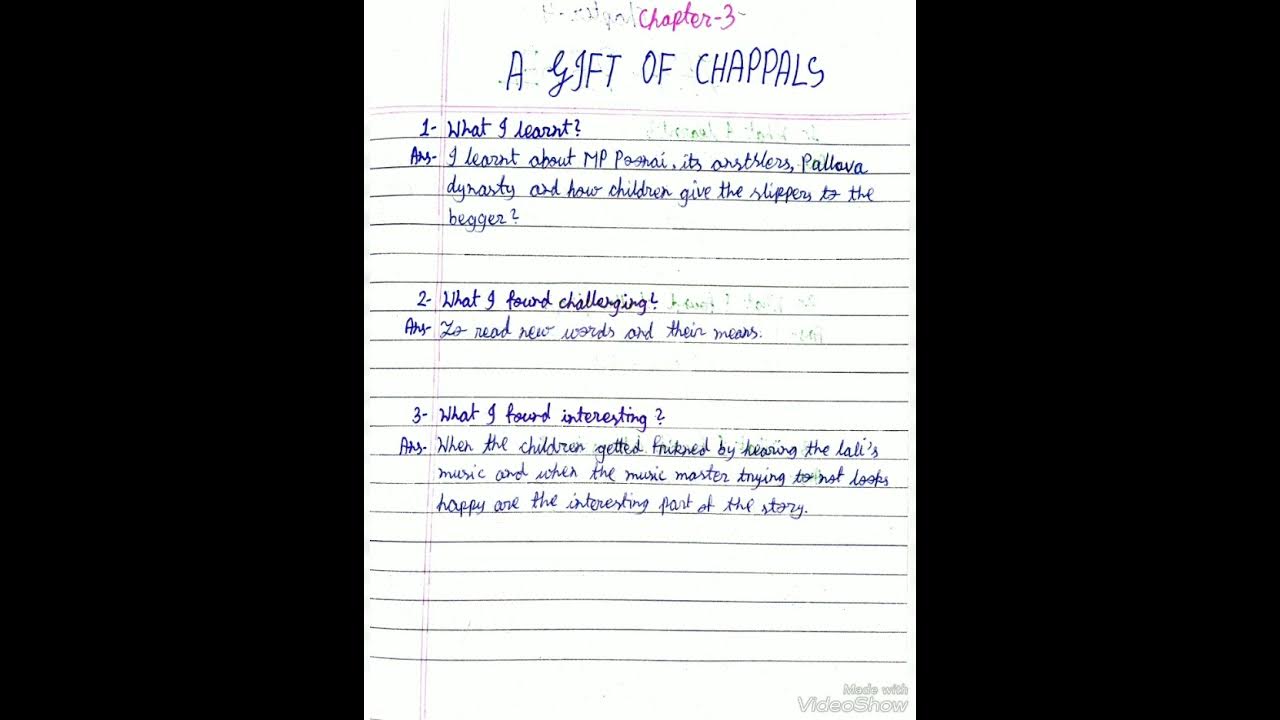 Chapter-3-
A GIFT OF CHAPPALS
1- What I learnt?
Ans- I learnt about MP Poonai, its anstslers, Pallava
dynasty and how children give the slippers to the
begger?
2- What I found challenging?
Ans- To read new words and their means.
3- What I found interesting?
Ans- When the children getted frikned by hearing the lali's
music and when the music master trying to not looks
happy are the interesting part of the story.
Made with
VideoShow